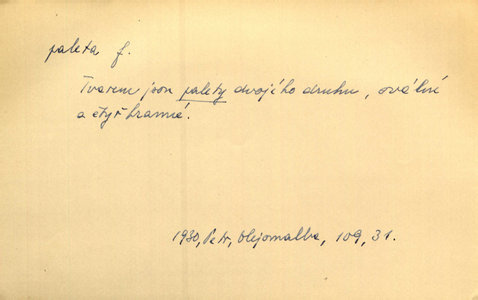 paleta f.
Tvarem jsou palety dvojího druhu, oválné
a čtyřhranné.
1930, Petr, Olejomalba, 109, 31.